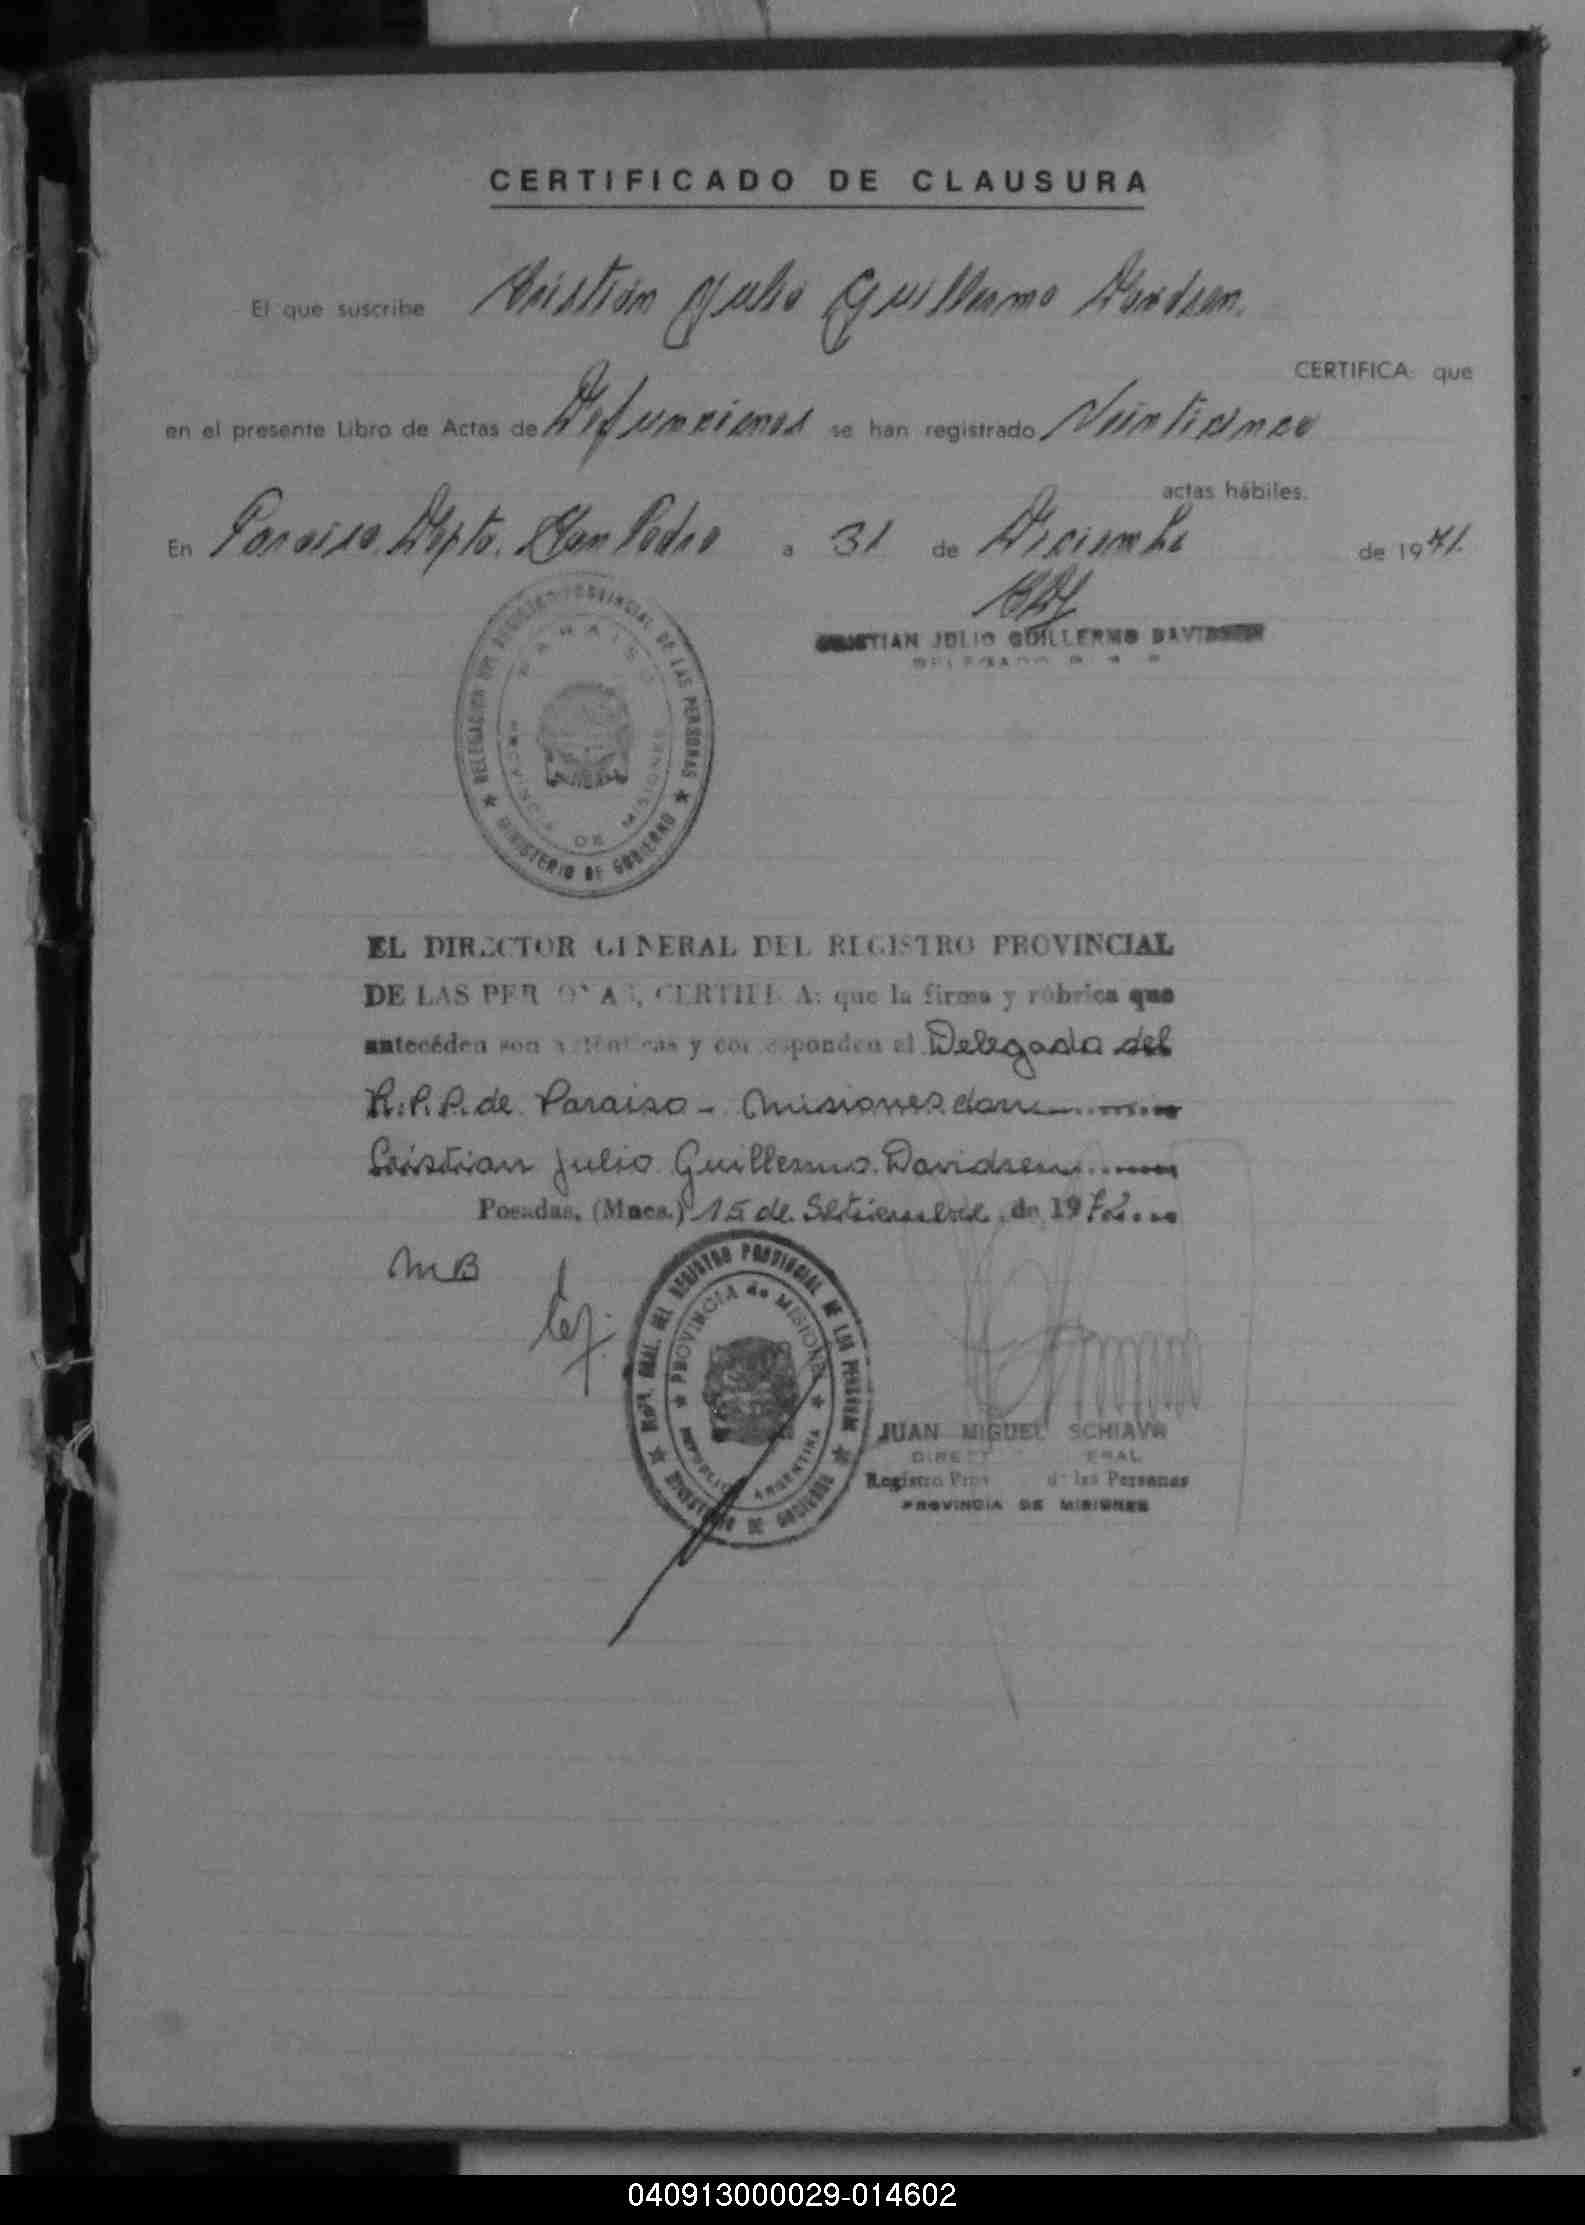 CERTIFICADO DE CLAUSURA
El que suscribe Cristián Julio Guillermo Davidsen.
CERTIFICA: que
en el presente Libro de Actas de Defunciones se han registrado Veinticinco
actas hábiles.
En Paraiso. Depto. San Pedro a 31 de Diciembre de 1971.
CRISTIAN JULIO GUILLERMO DAVIDSEN
DELEGADO
DELEGACION DEL REGISTRO PROVINCIAL DE LAS PERSONAS
PARAISO
PROVINCIA DE MISIONES
MINISTERIO DE GOBIERNO
EL DIRECTOR GENERAL DEL REGISTRO PROVINCIAL
DE LAS PERSONAS, CERTIFICA: que la firma y rúbrica que
antecéden son auténticas y corresponden al Delegado del
R.P.P. de Paraiso - Misiones don
Cristian Julio Guillermo Davidsen
Posadas, (Mnes.) 15 de Setiembre de 1972
MB
DIR. GRAL. DEL REGISTRO PROVINCIAL DE LAS PERSONAS
PROVINCIA de MISIONES
REPUBLICA ARGENTINA
MINISTERIO DE GOBIERNO
JUAN MIGUEL SCHIAVA
DIRECTOR GENERAL
Registro Prov. de las Personas
PROVINCIA DE MISIONES
040913000029-014602